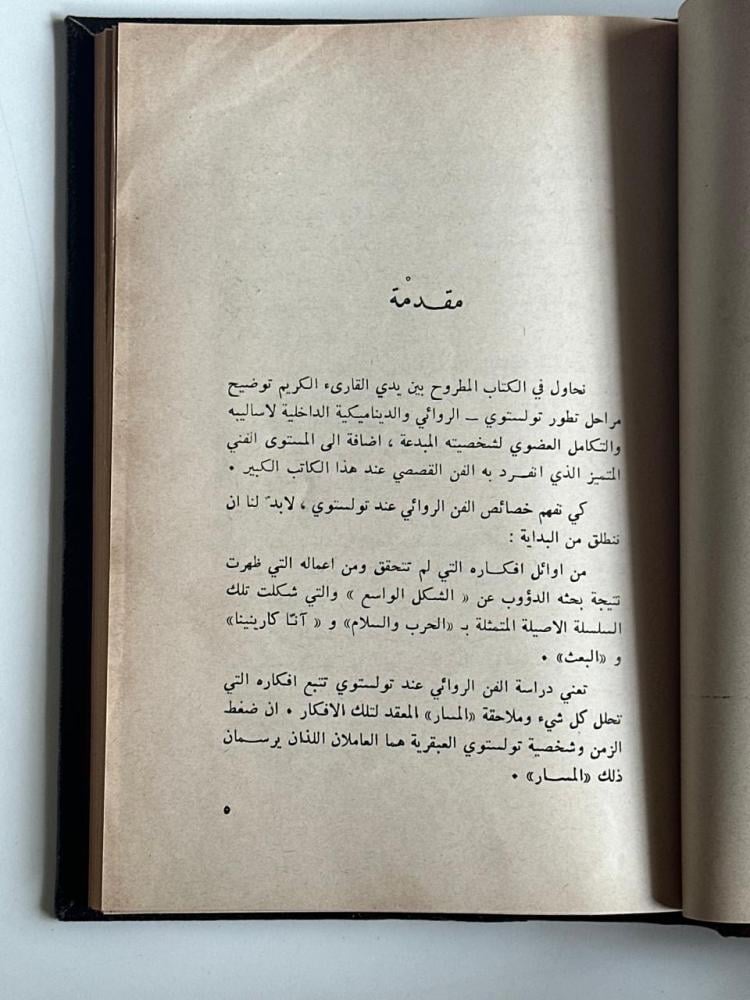 مقـدمْة
نحاول في الكتاب المطروح بين يدي القارىء الكريم توضيح
مراحل تطور تولستوي ــ الروائي والديناميكية الداخلية لاساليبه
والتكامل العضوي لشخصيته المبدعة ، اضافة الى المستوى الفني
المتميز الذي انفـرد به الفن القصصي عند هذا الكاتب الكبير ٠
كي نفهم خصائص الفن الروائي عند تولستوي ، لابدّ لنا ان
ننطلق من البداية :
من اوائل افكـاره التي لم تتحقق ومن اعماله التي ظهرت
نتيجة بحثه الدؤوب عن « الشكل الواسع » والتي شكلت تلك
السلسلة الاصيلة المتمثلة بـ «الحرب والسلام» و « آنـّا كارينينا»
و «البعث» ٠
تعني دراسة الفن الروائي عند تولستوي تتبع افكاره التي
تحلل كل شيء وملاحقة «المسار» المعقد لتلك الافكار ٠ ان ضغط
الزمن وشخصية تولستوي العبقرية هما العاملان اللذان يرسـمان
ذلك «المسـار» ٠
٥